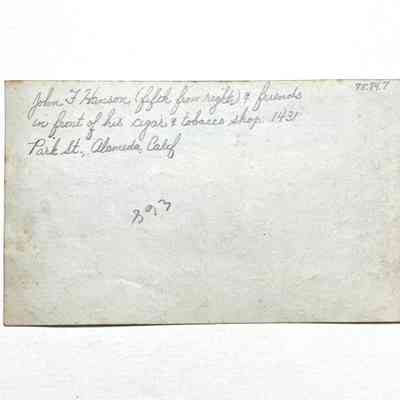 75.94.7
John F Hanson (fifth from right) & friends
in front of his cigar & tobacco shop. 1431
Park St., Alameda, Calif